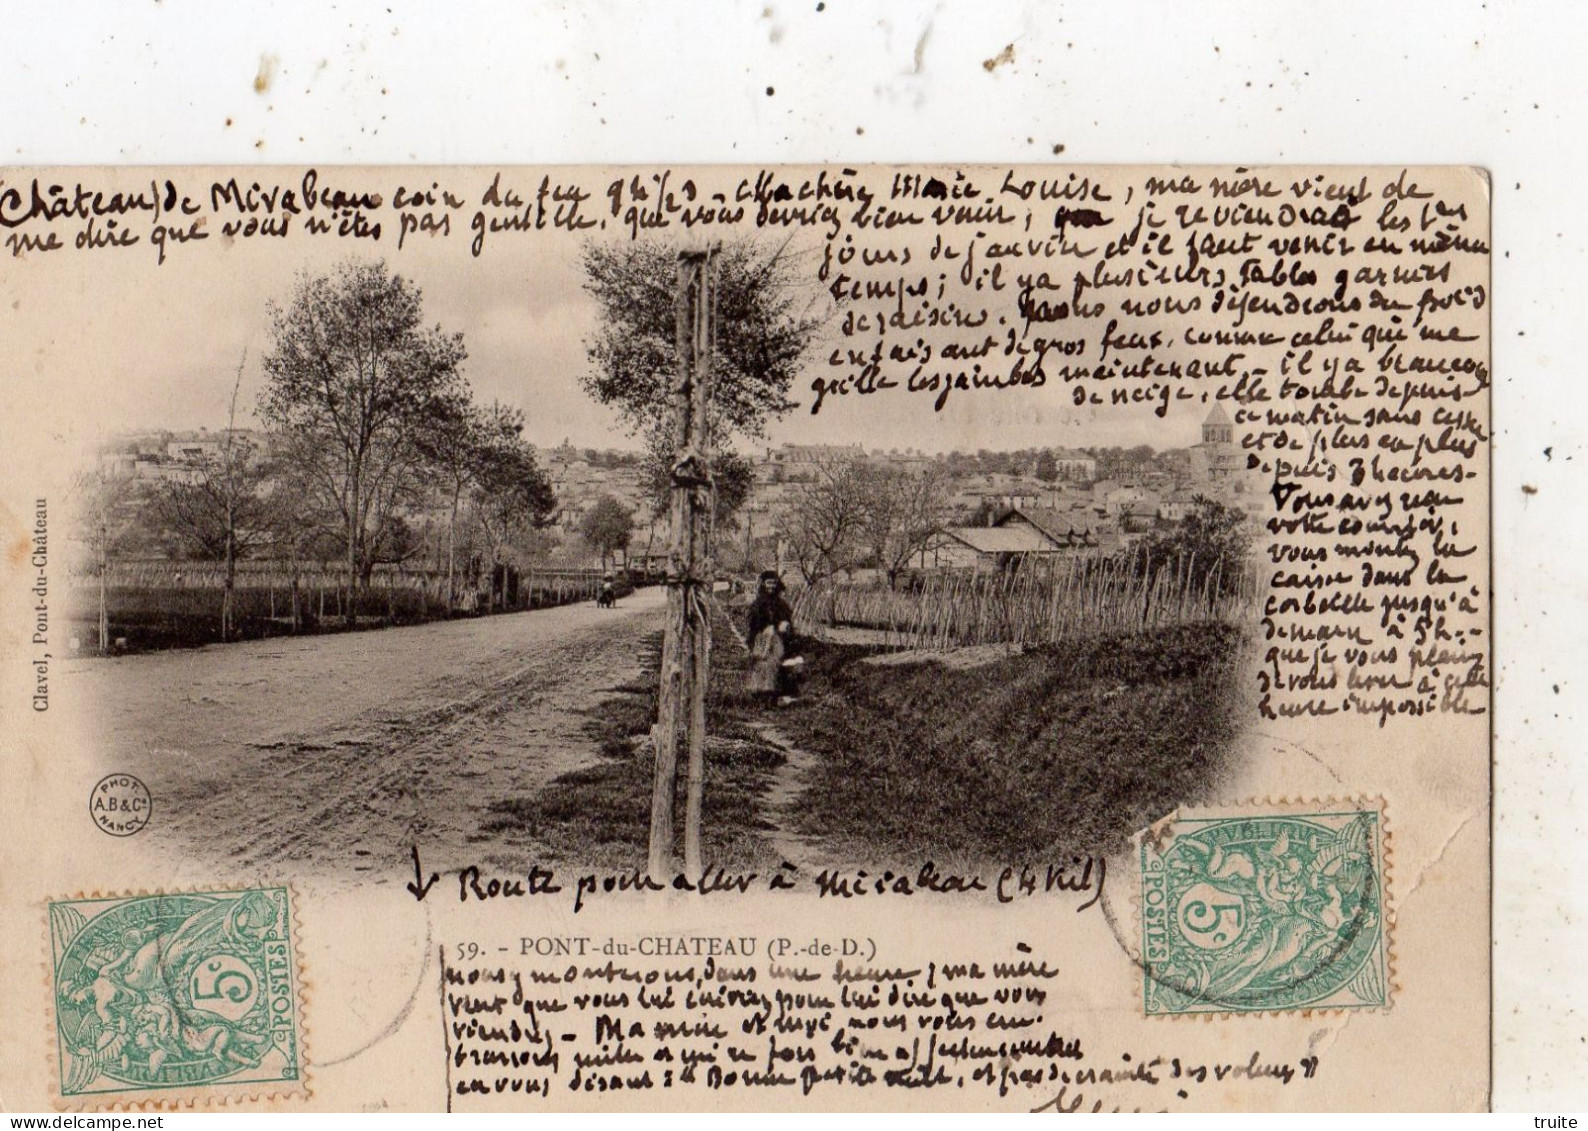 Château) de Mirabeau coin du feu Ma chère Marie Louise, ma mère vient de
me dire que vous n'êtes pas gentille, que vous devriez bien venir, je reviendrai les 1ers
jours de janvier et il faut venir en même
temps; il y a plusieurs tables garnies
de raisins. nous nous défendrons du froid
en faisant de gros feux, comme celui qui me
grille les jambes maintenant - il y a beaucoup
de neige, elle tombe depuis
ce matin sans cesse
et de plus en plus
depuis 3 heures -
Vous avez reçu
votre
vous montez la
caisse dans la
corbeille jusqu'à
demain à 5 h. -
que je vous plains
de vous lever à cette
heure impossible
Clavel, Pont-du-Château
PHOT.
A.B & Cie
NANCY
↓ Route pour aller à Mirabeau (4 Kil)
59. - PONT-du-CHATEAU (P.-de-D.)
nous y monterons, dans une heure, ma mère
veut que vous lui écriviez pour lui dire que vous
viendrez - Maman et moi nous vous em-
brassons mille et mille fois bien affectueusement
en vous disant : " Bonne petite nuit, et pas de crainte des voleurs "
RÉPUBLIQUE FRANÇAISE
5c
POSTES
RÉPUBLIQUE FRANÇAISE
5c
POSTES
delcampe.net
truite